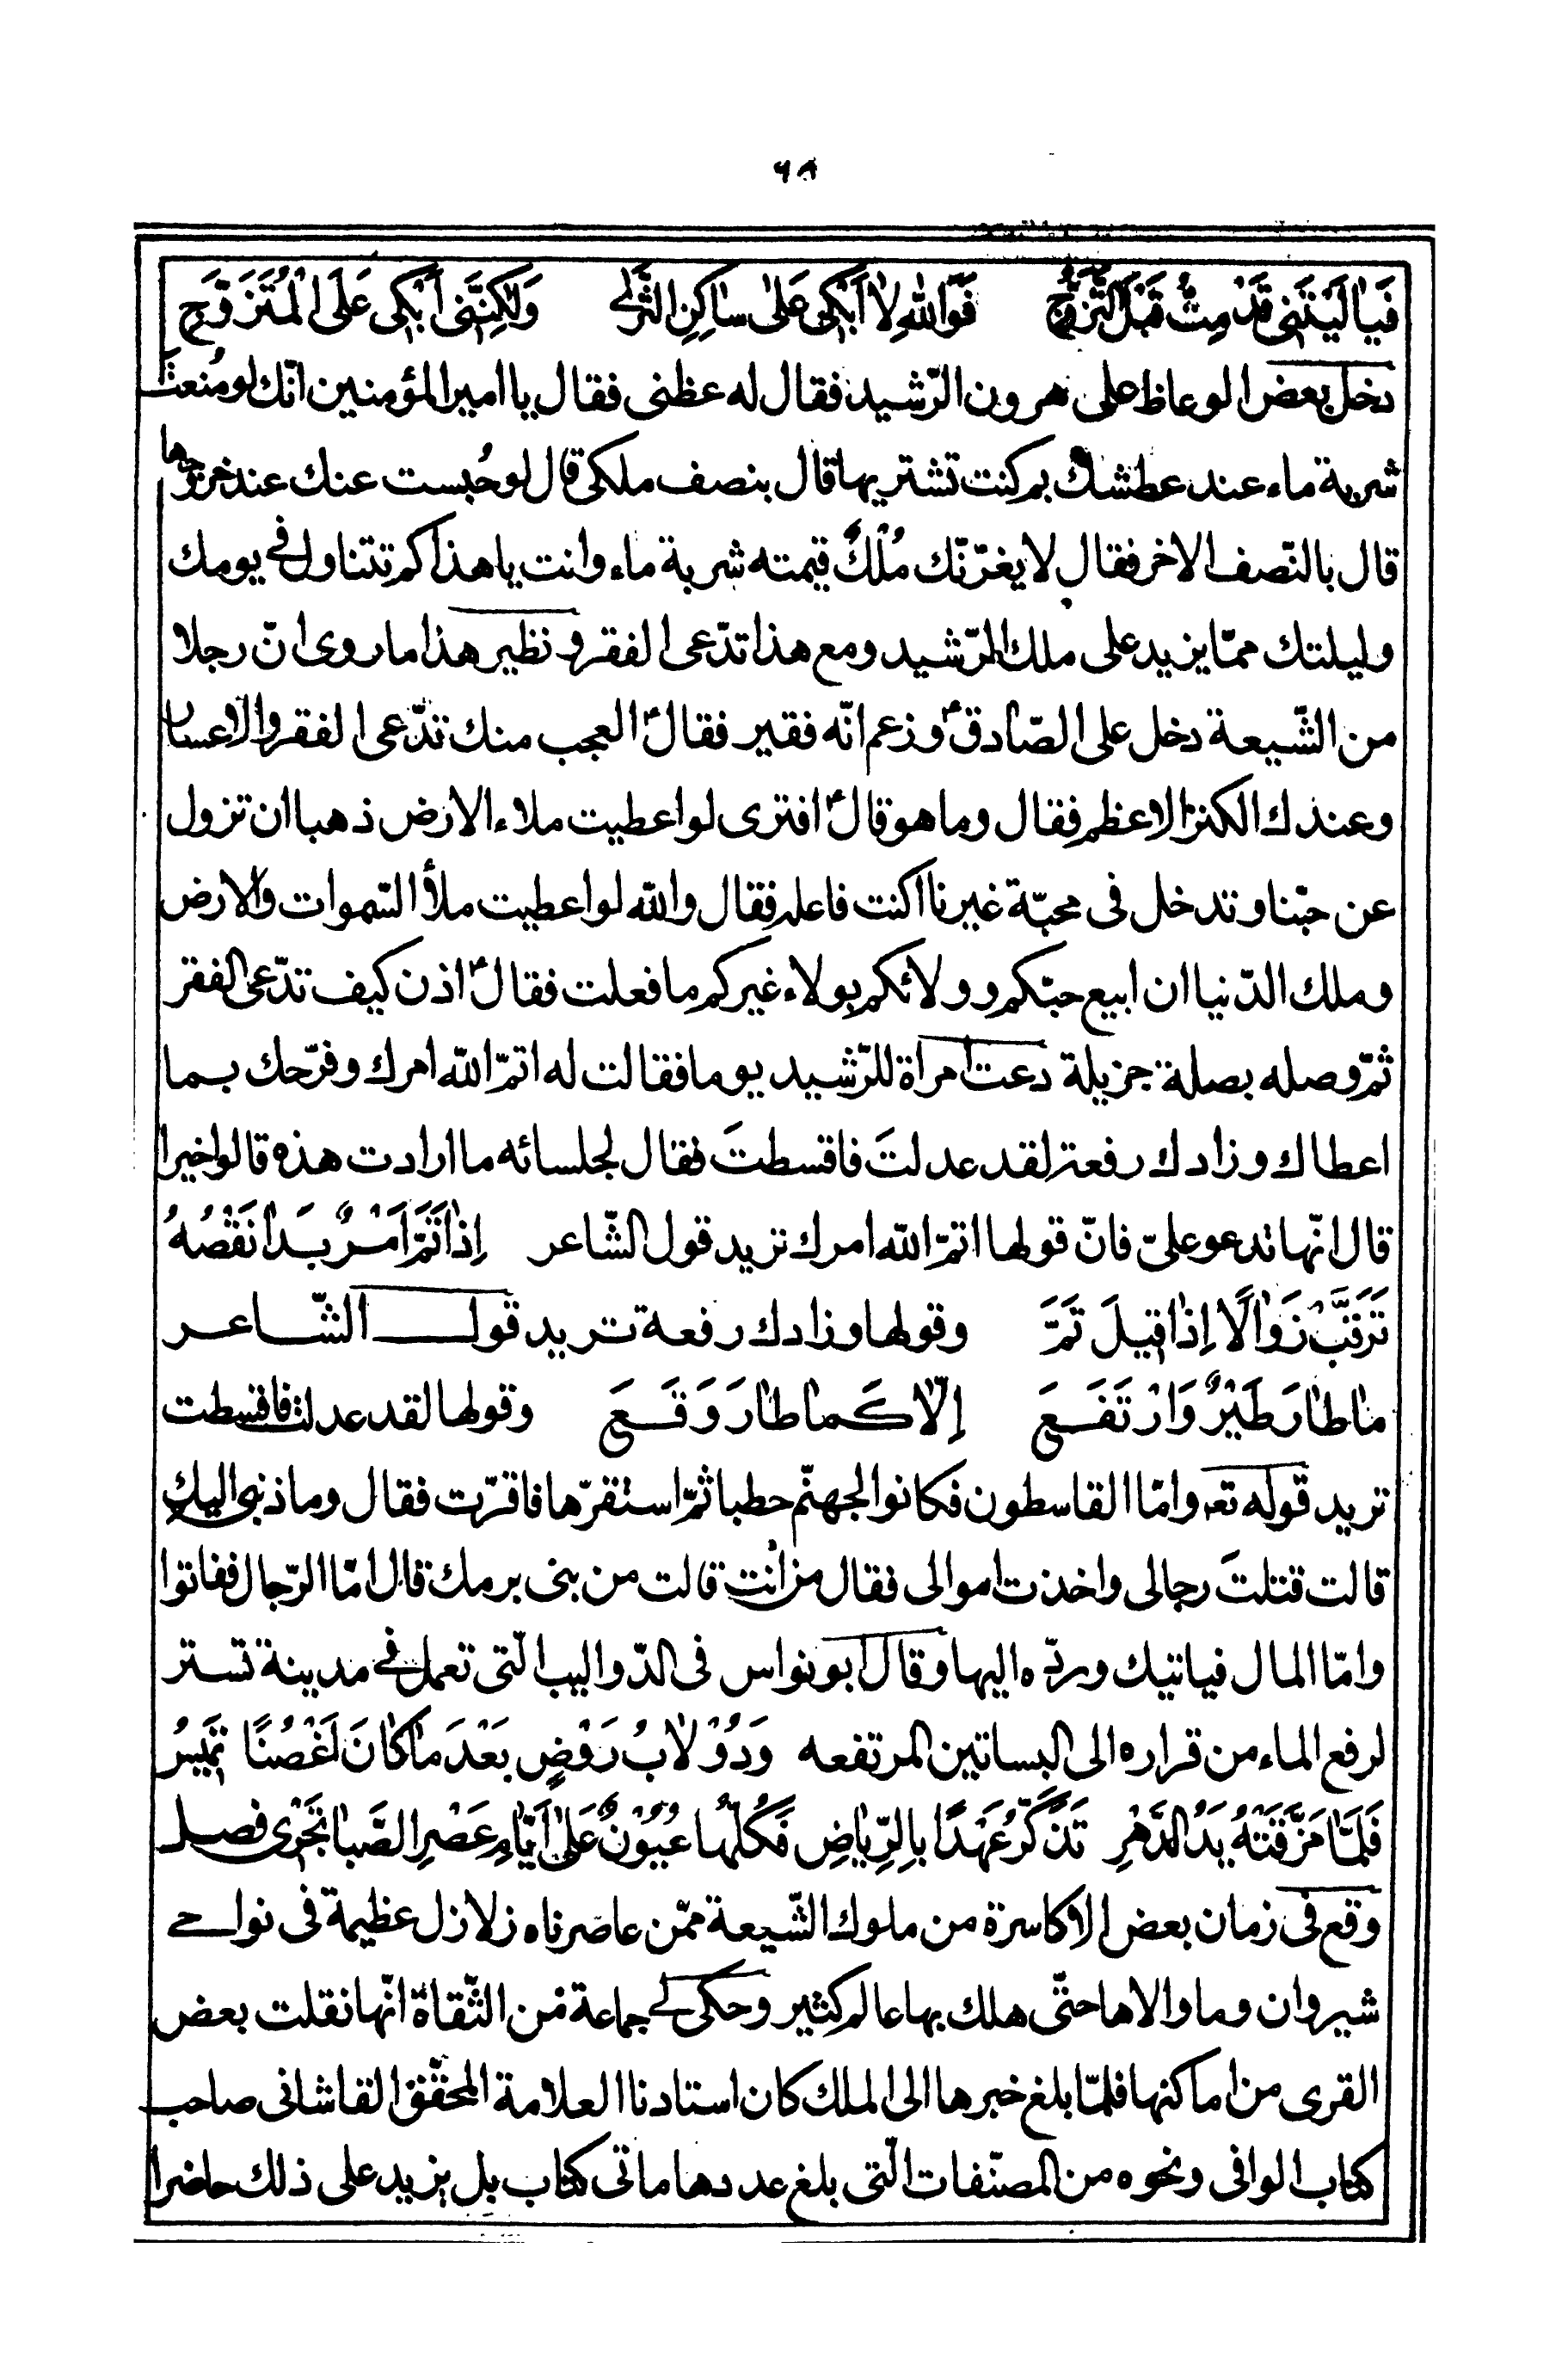 ٩٨
فَيٰا لَيْتَنٖى قَدْ مِتُّ قَبْلَ التَّزَوُّجِ فَوَاللّٰهِ لاٰ اَبْكٖى عَلىٰ سٰاكِنِ الثَّرىٰ وَلٰكِنَّنٖى اَبْكٖى عَلَى الْمُتَزَوِّجِ
دخل بعض الوعاظ على هرون الرّشيد فقال له عظنى فقال يا امير المؤمنين انّك لو مُنعتَ
شربة ماء عند عطشك بم كنت تشتريها قال بنصف ملكى قال لو حُبست عنك عند خروجها
قال بالنّصف الاخر فقال لا يغرّنّك مُلْكٌ قيمته شربة ماء وانت يا هذا كم تتناول فى يومك
وليلتك ممّا يزيد على ملك الرّشيد ومع هذا تدّعى الفقر و نظير هذا ما روى انّ رجلا
من الشّيعة دخل على الصّادق ع و زعم انّه فقير فقال ع العجب منك تدّعى الفقر والاعسار
وعندك الكنز الاعظم فقال وما هو قال ع افترى لو اعطيت ملاء الارض ذهبا ان تزول
عن حبّنا و تدخل فى محبّة غيرنا اكنت فاعلم فقال والله لو اعطيت ملأ السّموات والارض
وملك الدّنيا ان ابيع حبّكم و ولائكم بولاء غيركم ما فعلت فقال ع اذن كيف تدّعى الفقر
ثمّ وصله بصلة جزيلة دعت امراة للرّشيد يوما فقالت له اتمّ الله امرك وفرّحك بما
اعطاك و زادك رفعة لقد عدلتَ فاقسطتَ فقال لجلسائه ما ارادت هذه قالوا خيرا
قال انّها تدعو علىّ فانّ قولها اتمّ الله امرك تريد قول الشّاعر اِذٰا تَمَّ اَمْرٌ بَدٰا نَقْصُهُ
تَرَقَّبْ زَوٰالًا اِذٰا قٖيلَ تَمَّ وقولها و زادك رفعة تريد قول الشّاعر
مٰا طٰارَ طَيْرٌ وَارْتَفَعَ اِلّٰا كَمٰا طٰارَ وَقَعَ وقولها لقد عدلت فاقسطت
تريد قوله تعه وامّا القاسطون فكانوا لجهنّم حطبا ثمّ استقرّها فاقرّت فقال وما ذنبى اليك
قالت قتلتَ رجالى واخذت اموالى فقال من انت قالت من بنى برمك قال امّا الرّجال ففاتوا
وامّا المال فياتيك وردّه اليها و قال ابو نواس فى الدّواليب الّتى تعمل فى مدينة تستر
لرفع الماء من قراره الى البساتين المرتفعه وَدُوْلاٰبُ رَوْضٍ بَعْدَ مٰا كٰانَ اَغْصُنًا تَمٖيسُ
فَلَمّٰا مَزَّقَتْهُ يَدُ الدَّهْرِ تَذَكَّرَ عَهْدًا بِالرِّيٰاضِ فَكُلُّهٰا عُيُوْنٌ عَلىٰ اَيّٰامِ عَصْرِ الصَّبٰا تَجْرٖى فصل
وقع فى زمان بعض الاكاسرة من ملوك الشّيعة ممّن عاصرناه زلازل عظيمة فى نواحى
شيروان وما والاها حتّى هلك بها عالم كثير وحكى لى جماعة من الثّقاة انّها نقلت بعض
القرى من اماكنها فلمّا بلغ خبرها الى الملك كان استادنا العلامة المحقّق القاشانى صاحب
كتاب الوافى ونحوه من المصنّفات الّتى بلغ عددها ماتى كتاب بل يزيد على ذلك حاضرا